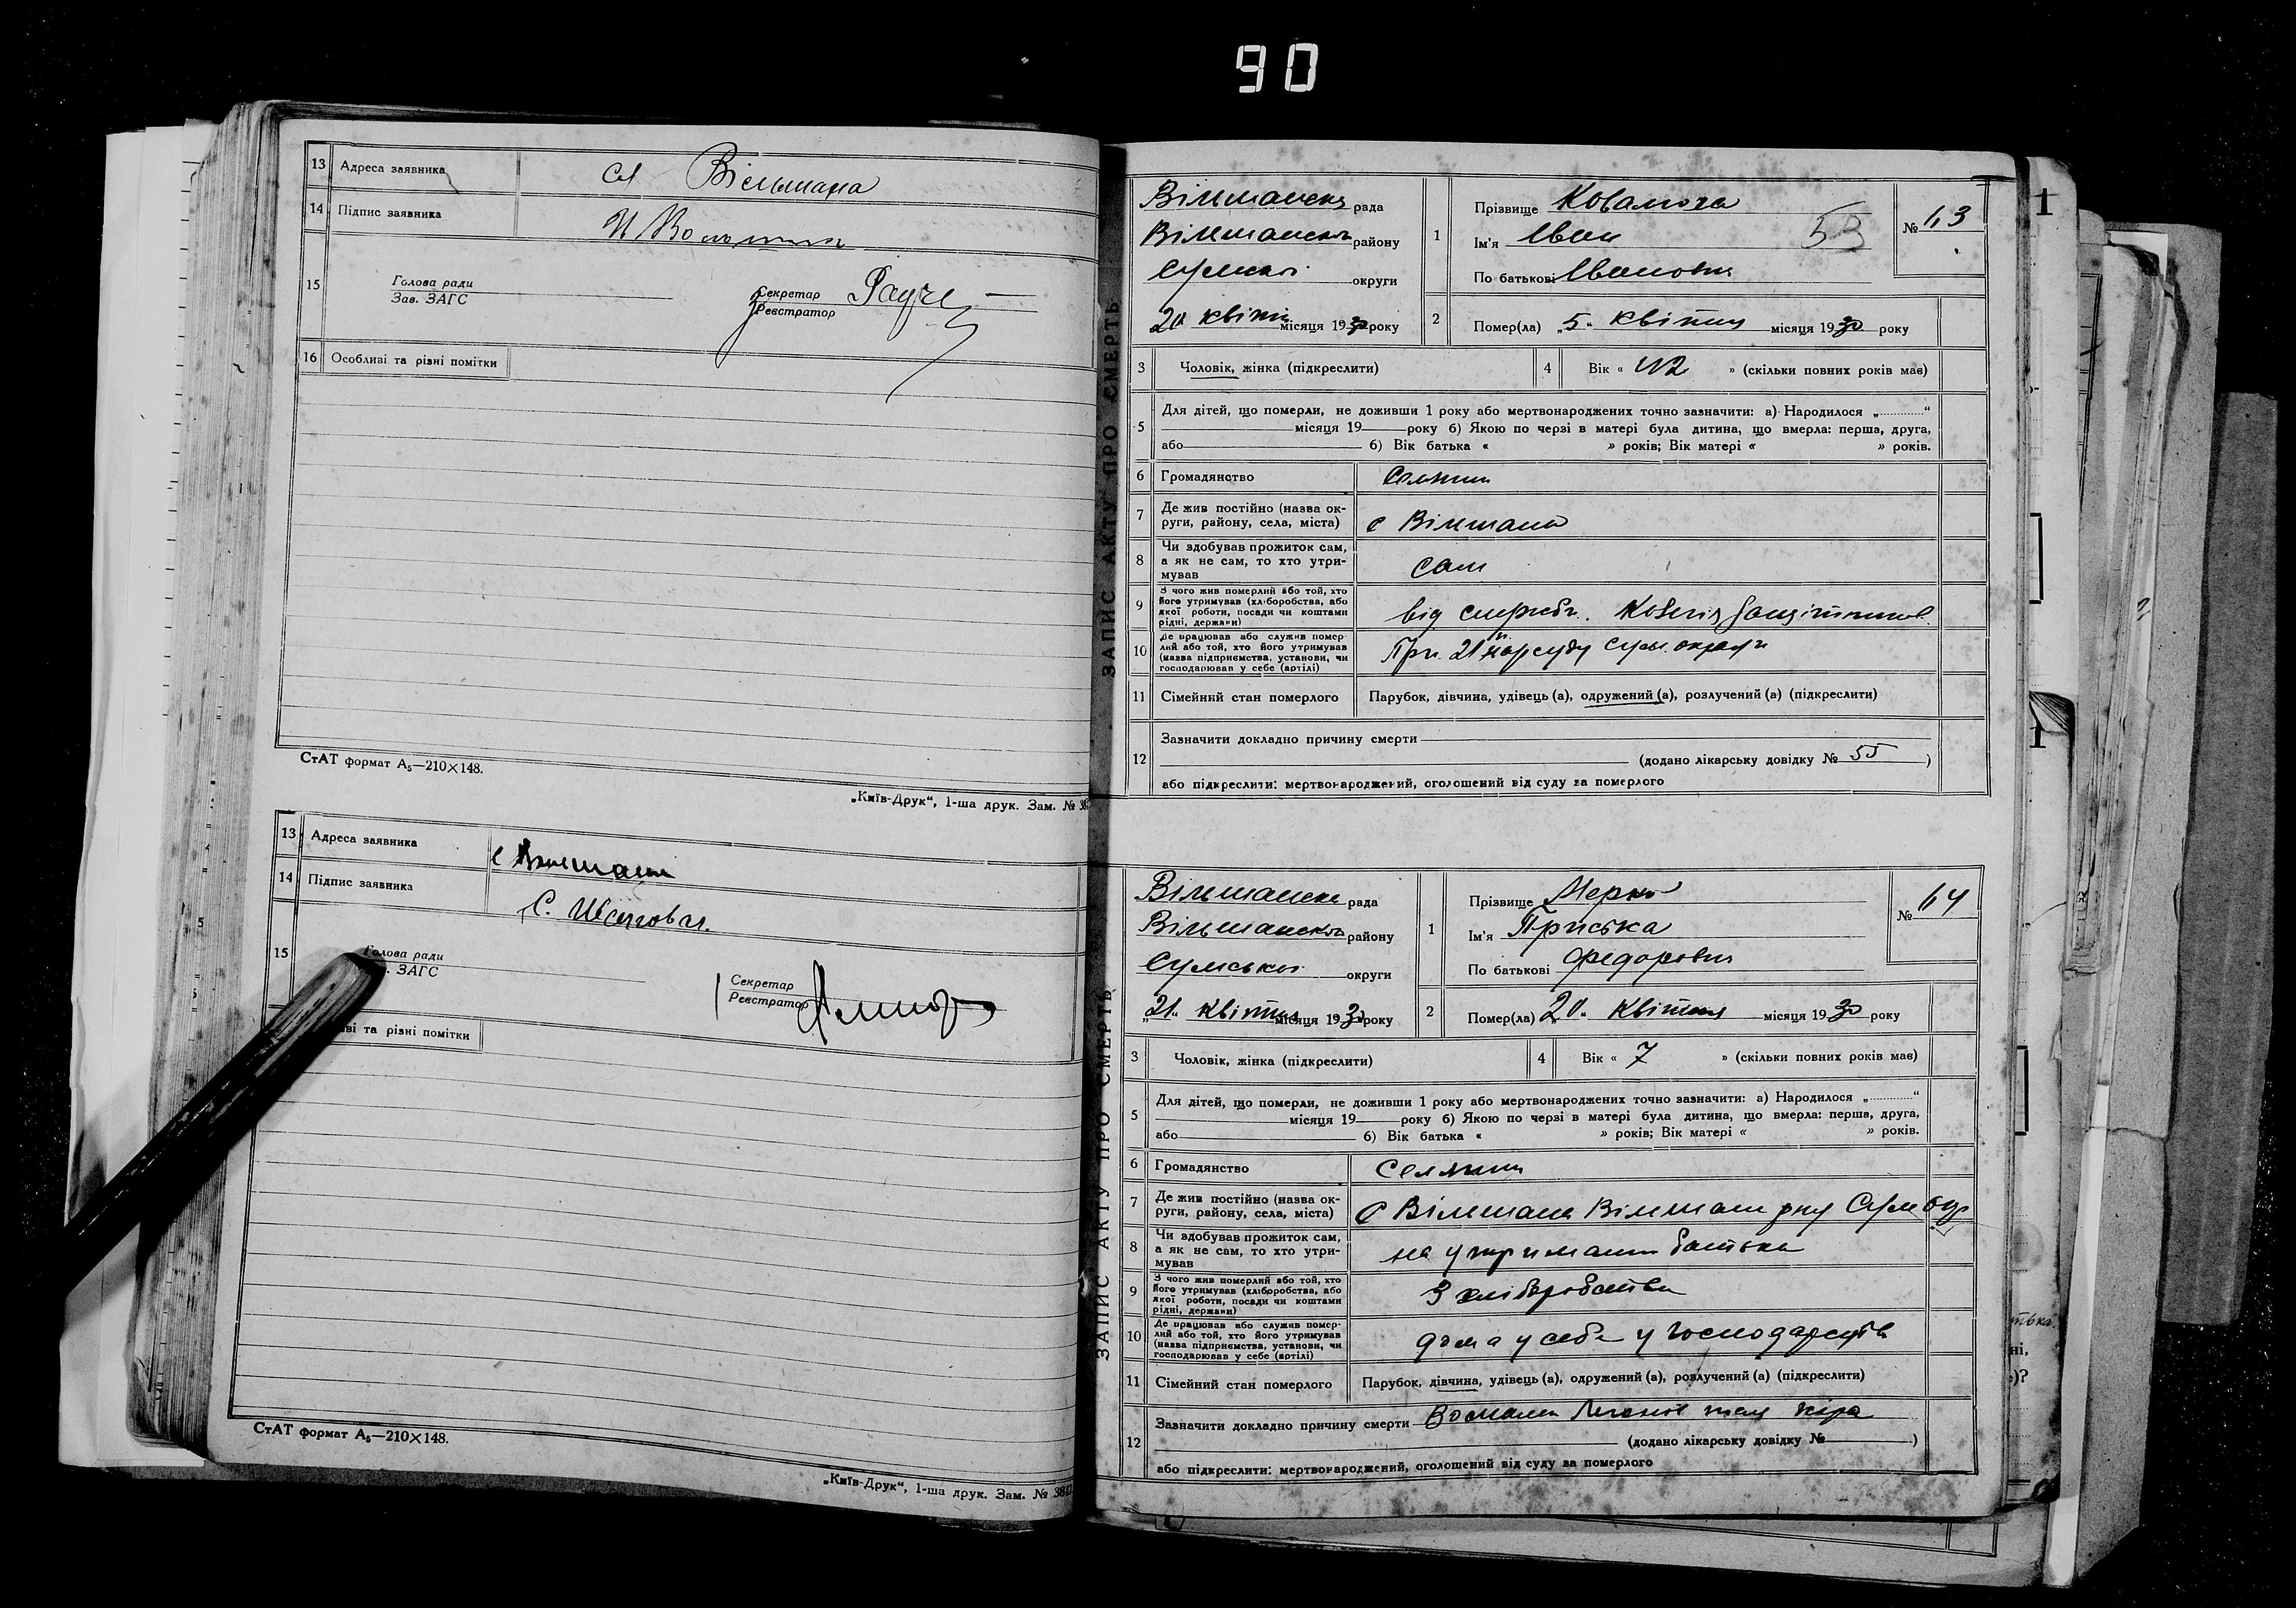 90
13 Адреса заявника сл Вільшана
14 Підпис заявника И
15 Голова ради
Зав. ЗАГС
Секретар
Реєстратор
16 Особливі та різні помітки
СтАТ формат А₅—210×148.
„Київ-Друк“, 1-ша друк. Зам. № 38
13 Адреса заявника с Вільшани
14 Підпис заявника С.
15 Голова ради
ЗАГС
Секретар
Реєстратор
ві та різні помітки
СтАТ формат А₅—210×148.
„Київ-Друк“, 1-ша друк. Зам. № 38
ЗАПИС АКТУ ПРО СМЕРТЬ
Вільшанська рада
Вільшанськ району
Сумської округи
20 квітн місяця 1930 року
1 Прізвище
Ім'я Іван
По батькові Іванович
53
№ 63
2 Помер(ла) „5“ квітня місяця 1930 року
3 Чоловік, жінка (підкреслити)
4 Вік « 42 » (скільки повних років має)
5 Для дітей, що померли, не доживши 1 року або мертвонароджених точно зазначити: а) Народилося „............“
місяця 19 року б) Якою по черзі в матері була дитина, що вмерла: перша, друга,
або б) Вік батька « » років; Вік матері « » років.
6 Громадянство Селянин
7 Де жив постійно (назва ок-
руги, району, села, міста) с Вільшана
8 Чи здобував прожиток сам,
а як не сам, то хто утри-
мував сам
9 З чого жив померлий або той, хто
його утримував (хліборобства, або
якої роботи, посади чи коштами
рідні, держави) від
10 Де працював або служив помер-
лий або той, хто його утримував
(назва підприємства, установи, чи
господарював у себе (артілі) При 21 нарсуду Сум. округи
11 Сімейний стан померлого Парубок, дівчина, удівець (а), одружений (а), розлучений (а) (підкреслити)
12 Зазначити докладно причину смерти
(додано лікарську довідку № 55 )
або підкреслити: мертвонароджений, оголошений від суду за померлого
ЗАПИС АКТУ ПРО СМЕРТЬ
Вільшанська рада
Вільшанськ району
Сумської округи
„21“ квітня місяця 1930 року
1 Прізвище
Ім'я Пріська
По батькові Федоровна
№ 64
2 Помер(ла) „20“ квітня місяця 1930 року
3 Чоловік, жінка (підкреслити)
4 Вік « 7 » (скільки повних років має)
5 Для дітей, що померли, не доживши 1 року або мертвонароджених точно зазначити: а) Народилося „............“
місяця 19 року б) Якою по черзі в матері була дитина, що вмерла: перша, друга,
або б) Вік батька « » років; Вік матері « » років.
6 Громадянство Селянин
7 Де жив постійно (назва ок-
руги, району, села, міста) с Вільшана Вільшан рну Сум окр
8 Чи здобував прожиток сам,
а як не сам, то хто утри-
мував на утриманні батька
9 З чого жив померлий або той, хто
його утримував (хліборобства, або
якої роботи, посади чи коштами
рідні, держави) З хліборобства
10 Де працював або служив помер-
лий або той, хто його утримував
(назва підприємства, установи, чи
господарював у себе (артілі) дома у себе у господарств
11 Сімейний стан померлого Парубок, дівчина, удівець (а), одружений (а), розлучений (а) (підкреслити)
12 Зазначити докладно причину смерти
(додано лікарську довідку № )
або підкреслити: мертвонароджений, оголошений від суду за померлого